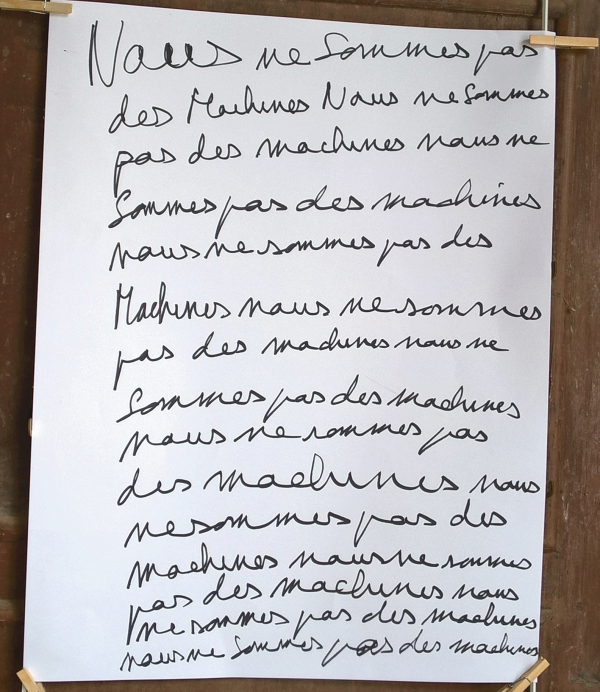 Nous ne sommes pas
des Machines Nous ne sommes
pas des machines nous ne
Sommes pas des machines
nous ne sommes pas des
Machines nous ne sommes
pas des machines nous ne
Sommes pas des machines
nous ne sommes pas
des machines nous
ne sommes pas des
machines nous ne sommes
pas des machines nous
ne sommes pas des machines
nous ne sommes pas des machines